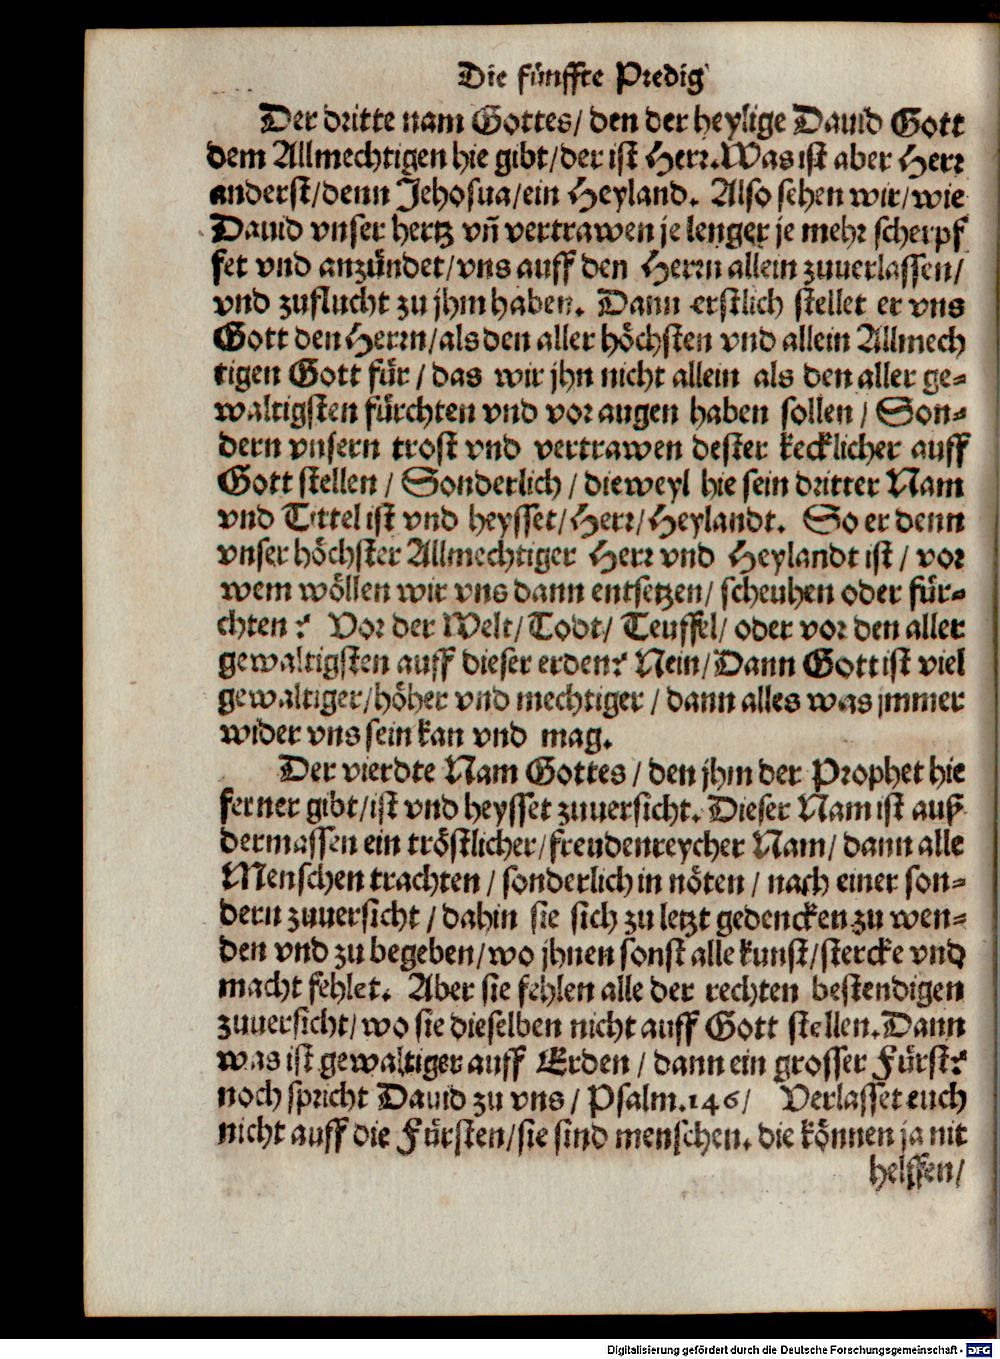 Die fünffte Predig
Der dritte nam Gottes/ den der heylige Dauid Gott
dem Allmechtigen hie gibt/der ist Herr.Was ist aber Herr
anderst/denn Jehosua/ein Heyland. Also sehen wir/wie
Dauid vnser hertz vñ vertrawen je lenger je mehr scherpf
fet vnd anzündet/vns auff den Herrn allein zuuerlassen/
vnd zuflucht zu jhm haben. Dann erstlich stellet er vns
Gott den Herrn/als den aller höchsten vnd allein Allmech
tigen Gott für / das wir jhn nicht allein als den aller ge-
waltigsten fürchten vnd vor augen haben sollen / Son-
dern vnsern trost vnd vertrawen dester kecklicher auff
Gott stellen / Sonderlich / dieweyl hie sein dritter Nam
vnd Tittel ist vnd heysset/ Herr/ Heylandt. So er denn
vnser höchster Allmechtiger Herr vnd Heylandt ist / vor
wem wöllen wir vns dann entsetzen/ scheuhen oder für-
chten ? Vor der Welt/ Todt/ Teuffel/ oder vor den aller
gewaltigsten auff dieser erden? Nein/ Dann Gott ist viel
gewaltiger/höher vnd mechtiger / dann alles was jmmer
wider vns sein kan vnd mag.
Der vierdte Nam Gottes / den jhm der Prophet hie
ferner gibt/ist vnd heysset zuuersicht. Dieser Nam ist auß
dermassen ein tröstlicher/freudenreycher Nam/ dann alle
Menschen trachten / sonderlich in nöten / nach einer son-
dern zuuersicht / dahin sie sich zu letzt gedencken zu wen-
den vnd zu begeben/wo jhnen sonst alle kunst/stercke vnd
macht fehlet. Aber sie fehlen alle der rechten bestendigen
zuuersicht/wo sie dieselben nicht auff Gott stellen.Dann
was ist gewaltiger auff Erden / dann ein grosser Fürst?
noch spricht Dauid zu vns / Psalm.146/ Verlasset euch
nicht auff die Fürsten/sie sind menschen. die können ja nit
helffen/
Digitalisierung gefördert durch die Deutsche Forschungsgemeinschaft - DFG